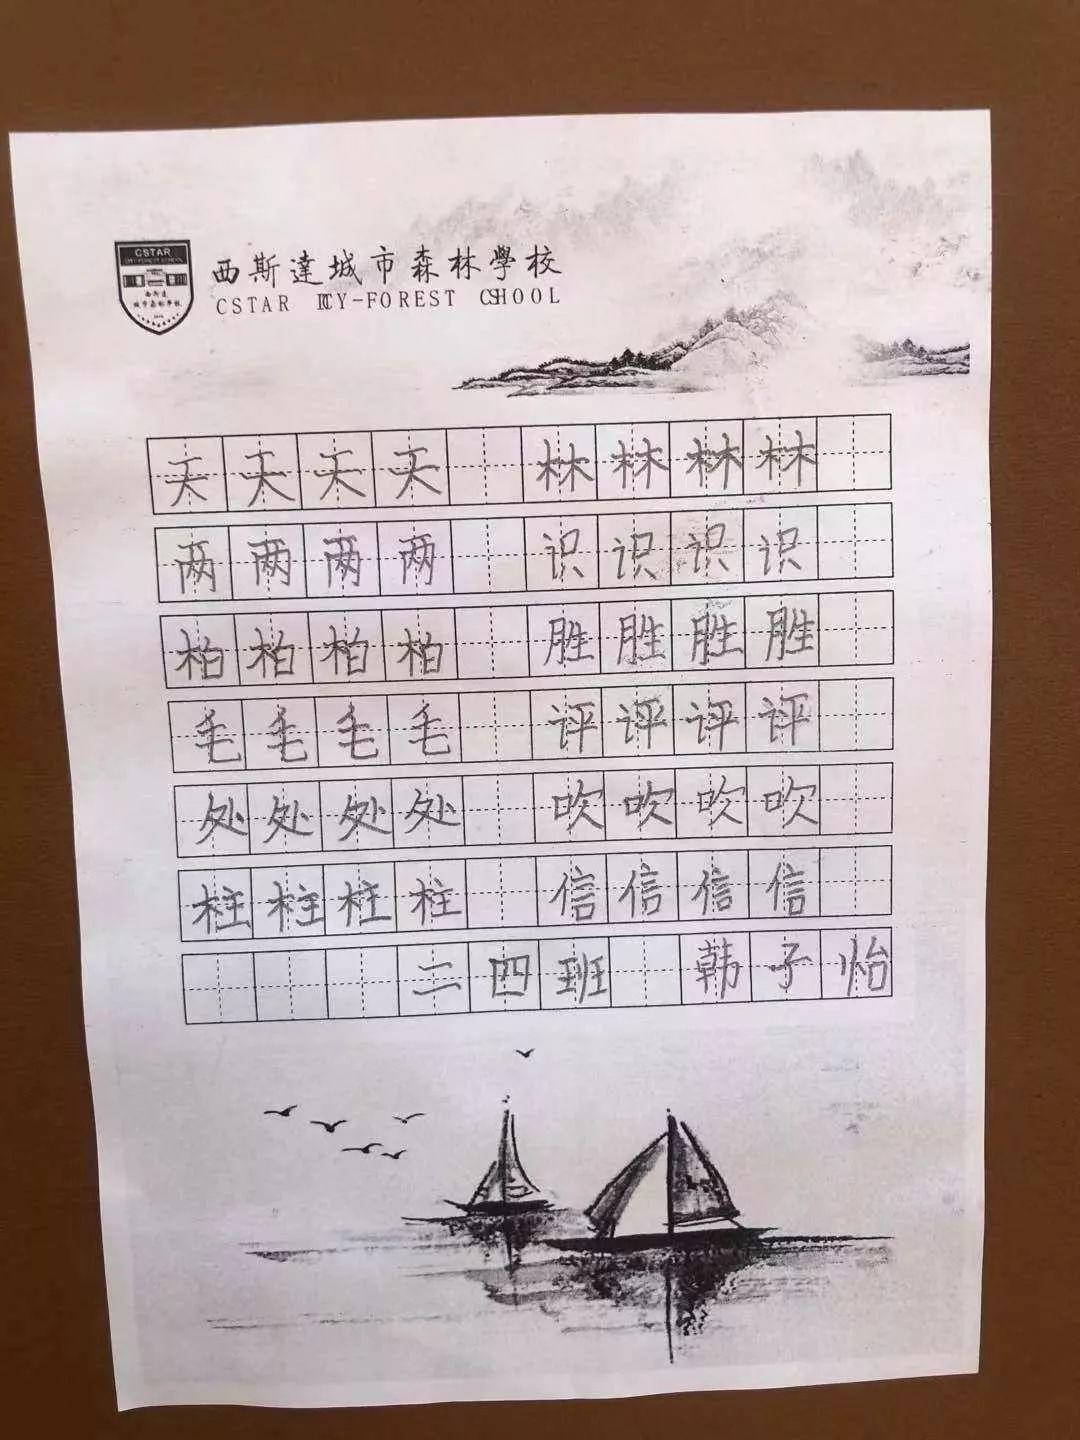 CSTAR
西斯達
城市森林學校
西斯達城市森林學校
CSTAR ICY-FOREST CSHOOL
天天天天 林林林林
两两两两 识识识识
柏柏柏柏 胜胜胜胜
毛毛毛毛 评评评评
处处处处 吹吹吹吹
柱柱柱柱 信信信信
二四班 韩子怡